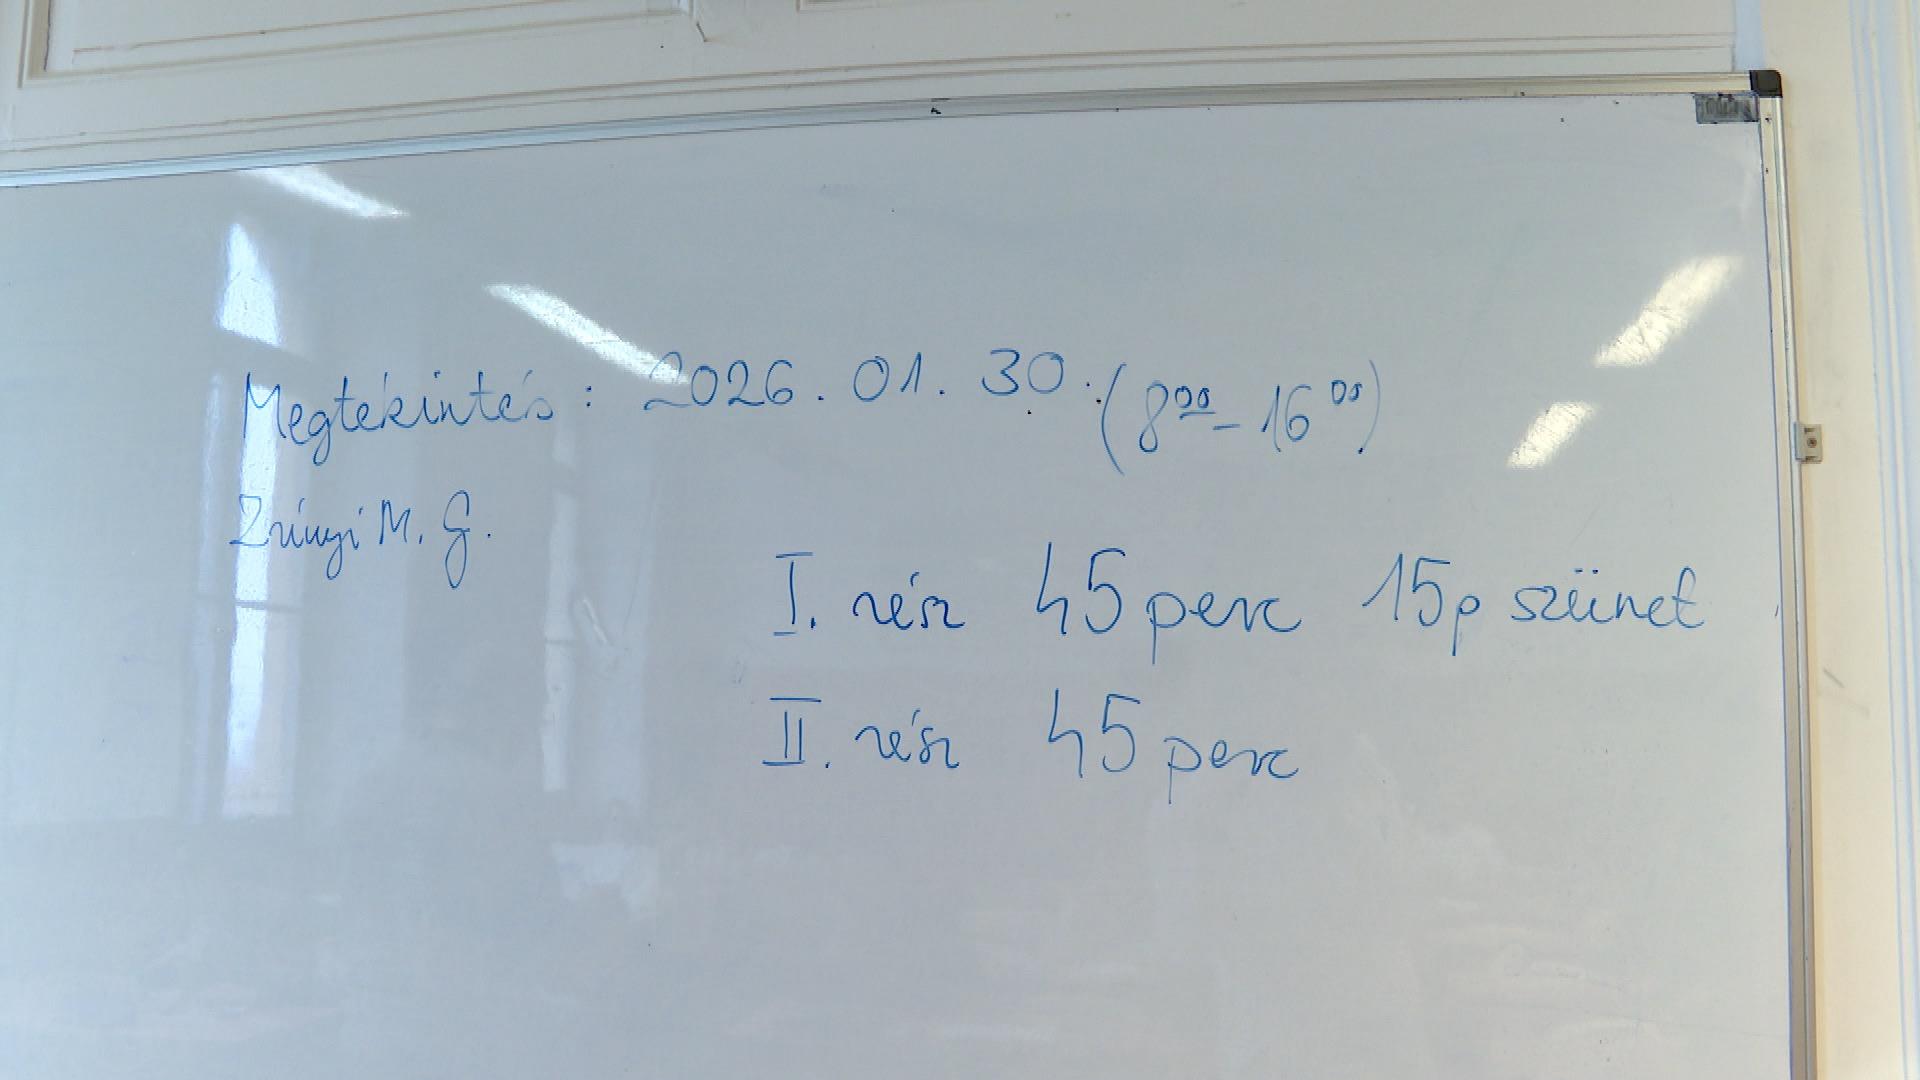 Megtekintés: 2026. 01. 30. (8⁰⁰ - 16⁰⁰)
Zrínyi M. G.
I. rész 45 perc 15p szünet
II. rész 45 perc